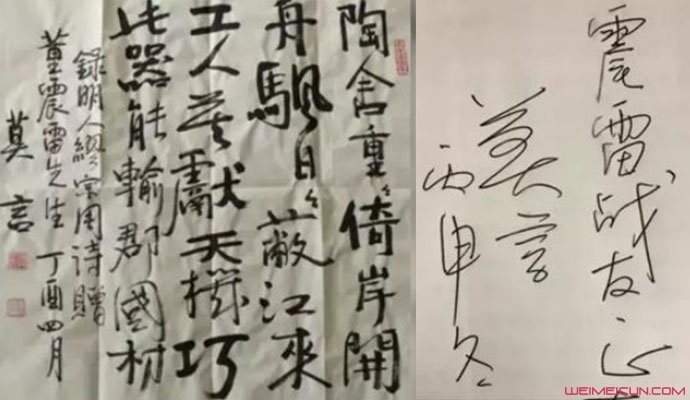 陶舍重〻倚岸開
舟颿日〻蔽江來
工人莫獻天機巧
此器能輸郡國材
錄明人繆宗周詩贈
董震雷先生 丁酉四月
莫言
震雷战友正
莫言
丙申冬
WEIMEICUN.COM